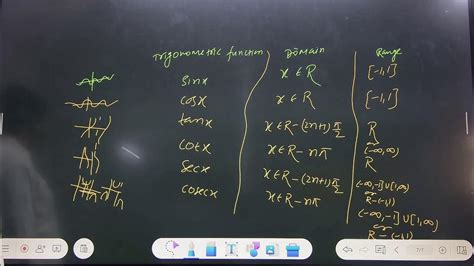 Trigonometric function Domain Range
sinx x ∈ R [-1,1]
cosx x ∈ R [-1,1]
tanx x ∈ R-(2n+1)π/2 R
(-∞,∞)
cotx x ∈ R-nπ R
secx x ∈ R-(2n+1)π/2 (-∞,-1]∪[1,∞)
or
R-(-1,1)
cosecx x ∈ R-nπ (-∞,-1]∪[1,∞)
or
R-(-1,1)